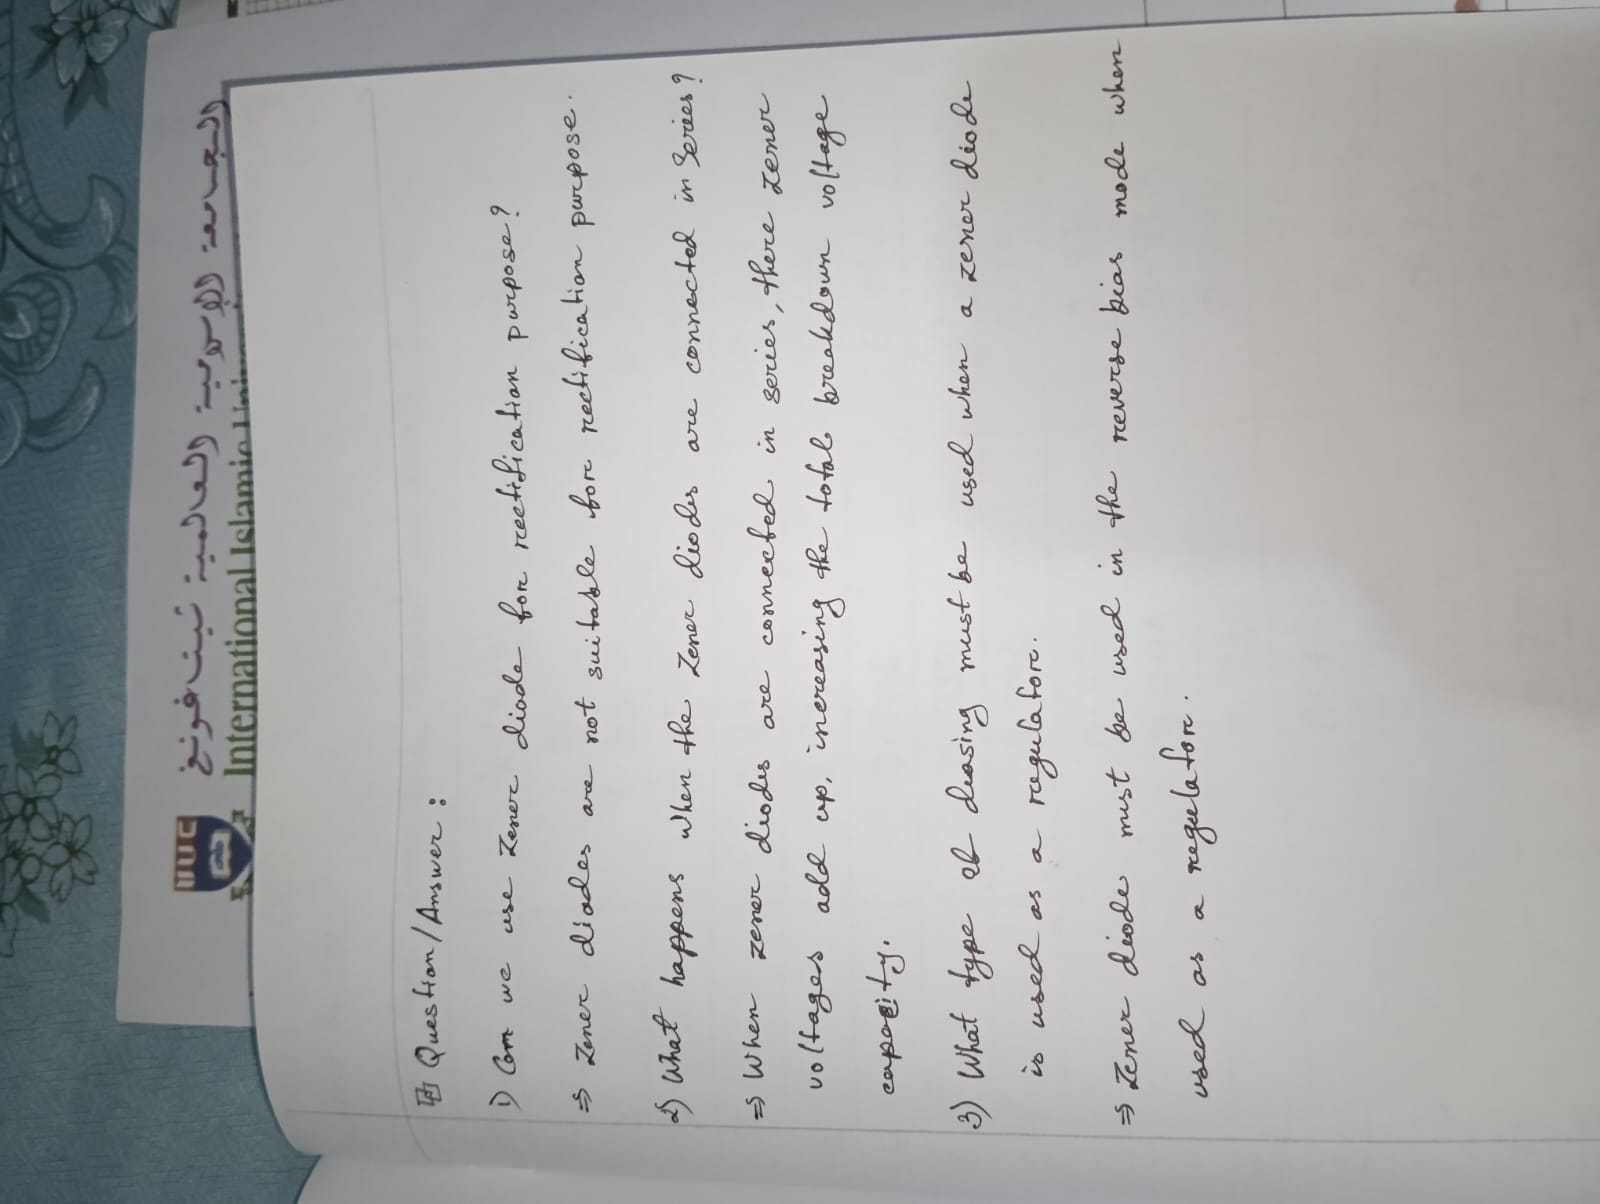 الجامعة الإسلامية العالمية شيتاغونغ
IIUC
International Islamic
Question/Answer:
1) Can we use Zener diode for rectification purpose?
⇒ Zener diodes are not suitable for rectification purpose.
2) What happens when the Zener diodes are connected in Series?
⇒ When zener diodes are connected in series, there zener
voltages add up, increasing the total breakdown voltage
capacity.
3) What type of biasing must be used when a zener diode
is used as a regulator.
⇒ Zener diode must be used in the reverse bias mode when
used as a regulator.